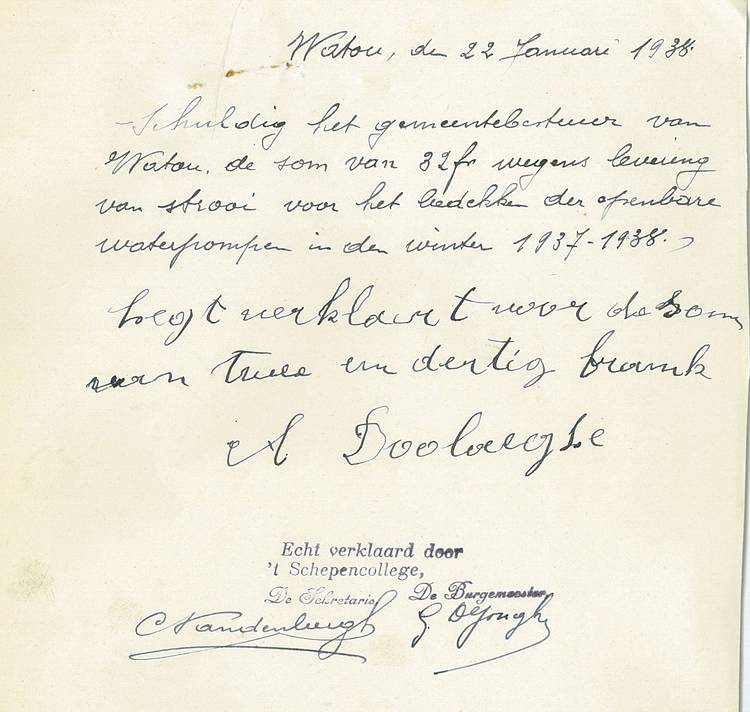 Watou, den 22 Januari 1938.
Schuldig het gemeentebestuur van
Watou, de som van 32 fr wegens levering
van strooi voor het bedekken der openbare
waterpompen in den winter 1937-1938.
hegt verklaert voor de som
van twee en dertig framk
A Boolaeghe
Echt verklaard door
't Schepencollege,
De Sekretaris De Burgemeester
C Vandenbergh G. D'Yonghe